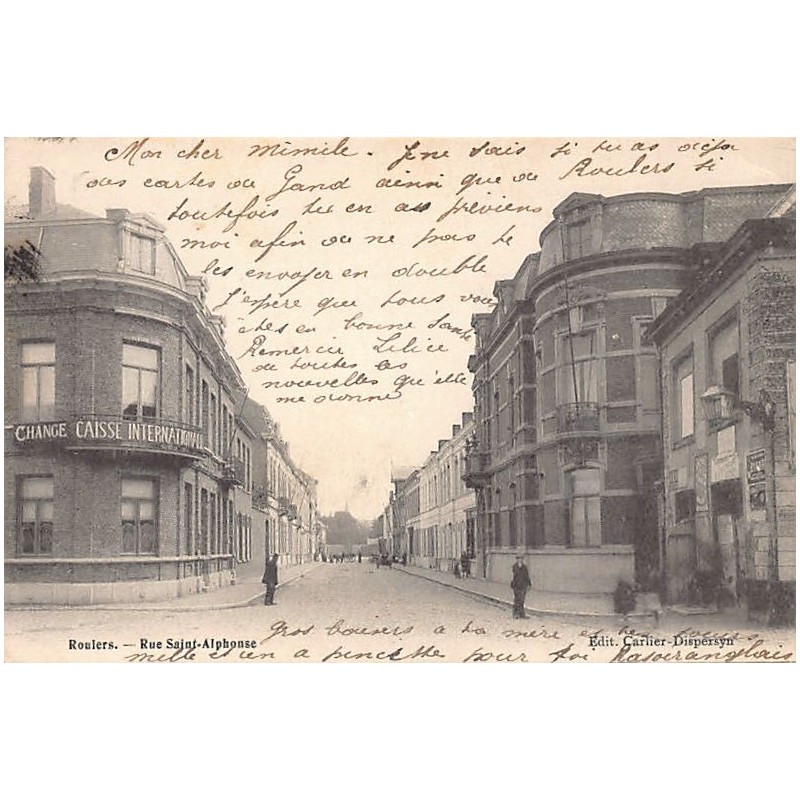 Mon cher Mimile. Je ne sais si tu as déja
des cartes de Gand ainsi que de Roulers si
toutefois tu en as préviens
moi afin de ne pas te
les envoyer en double
J'espère que tous vous
êtes en bonne santé
Remercie Lilice
de toutes les
nouvelles qu'elle
me donne
CHANGE CAISSE INTERNATIONALE
Gros baisers à ta mère
Roulers. — Rue Saint-Alphonse
Edit. Carlier-Dispersyn
mille et un a pincette pour toi